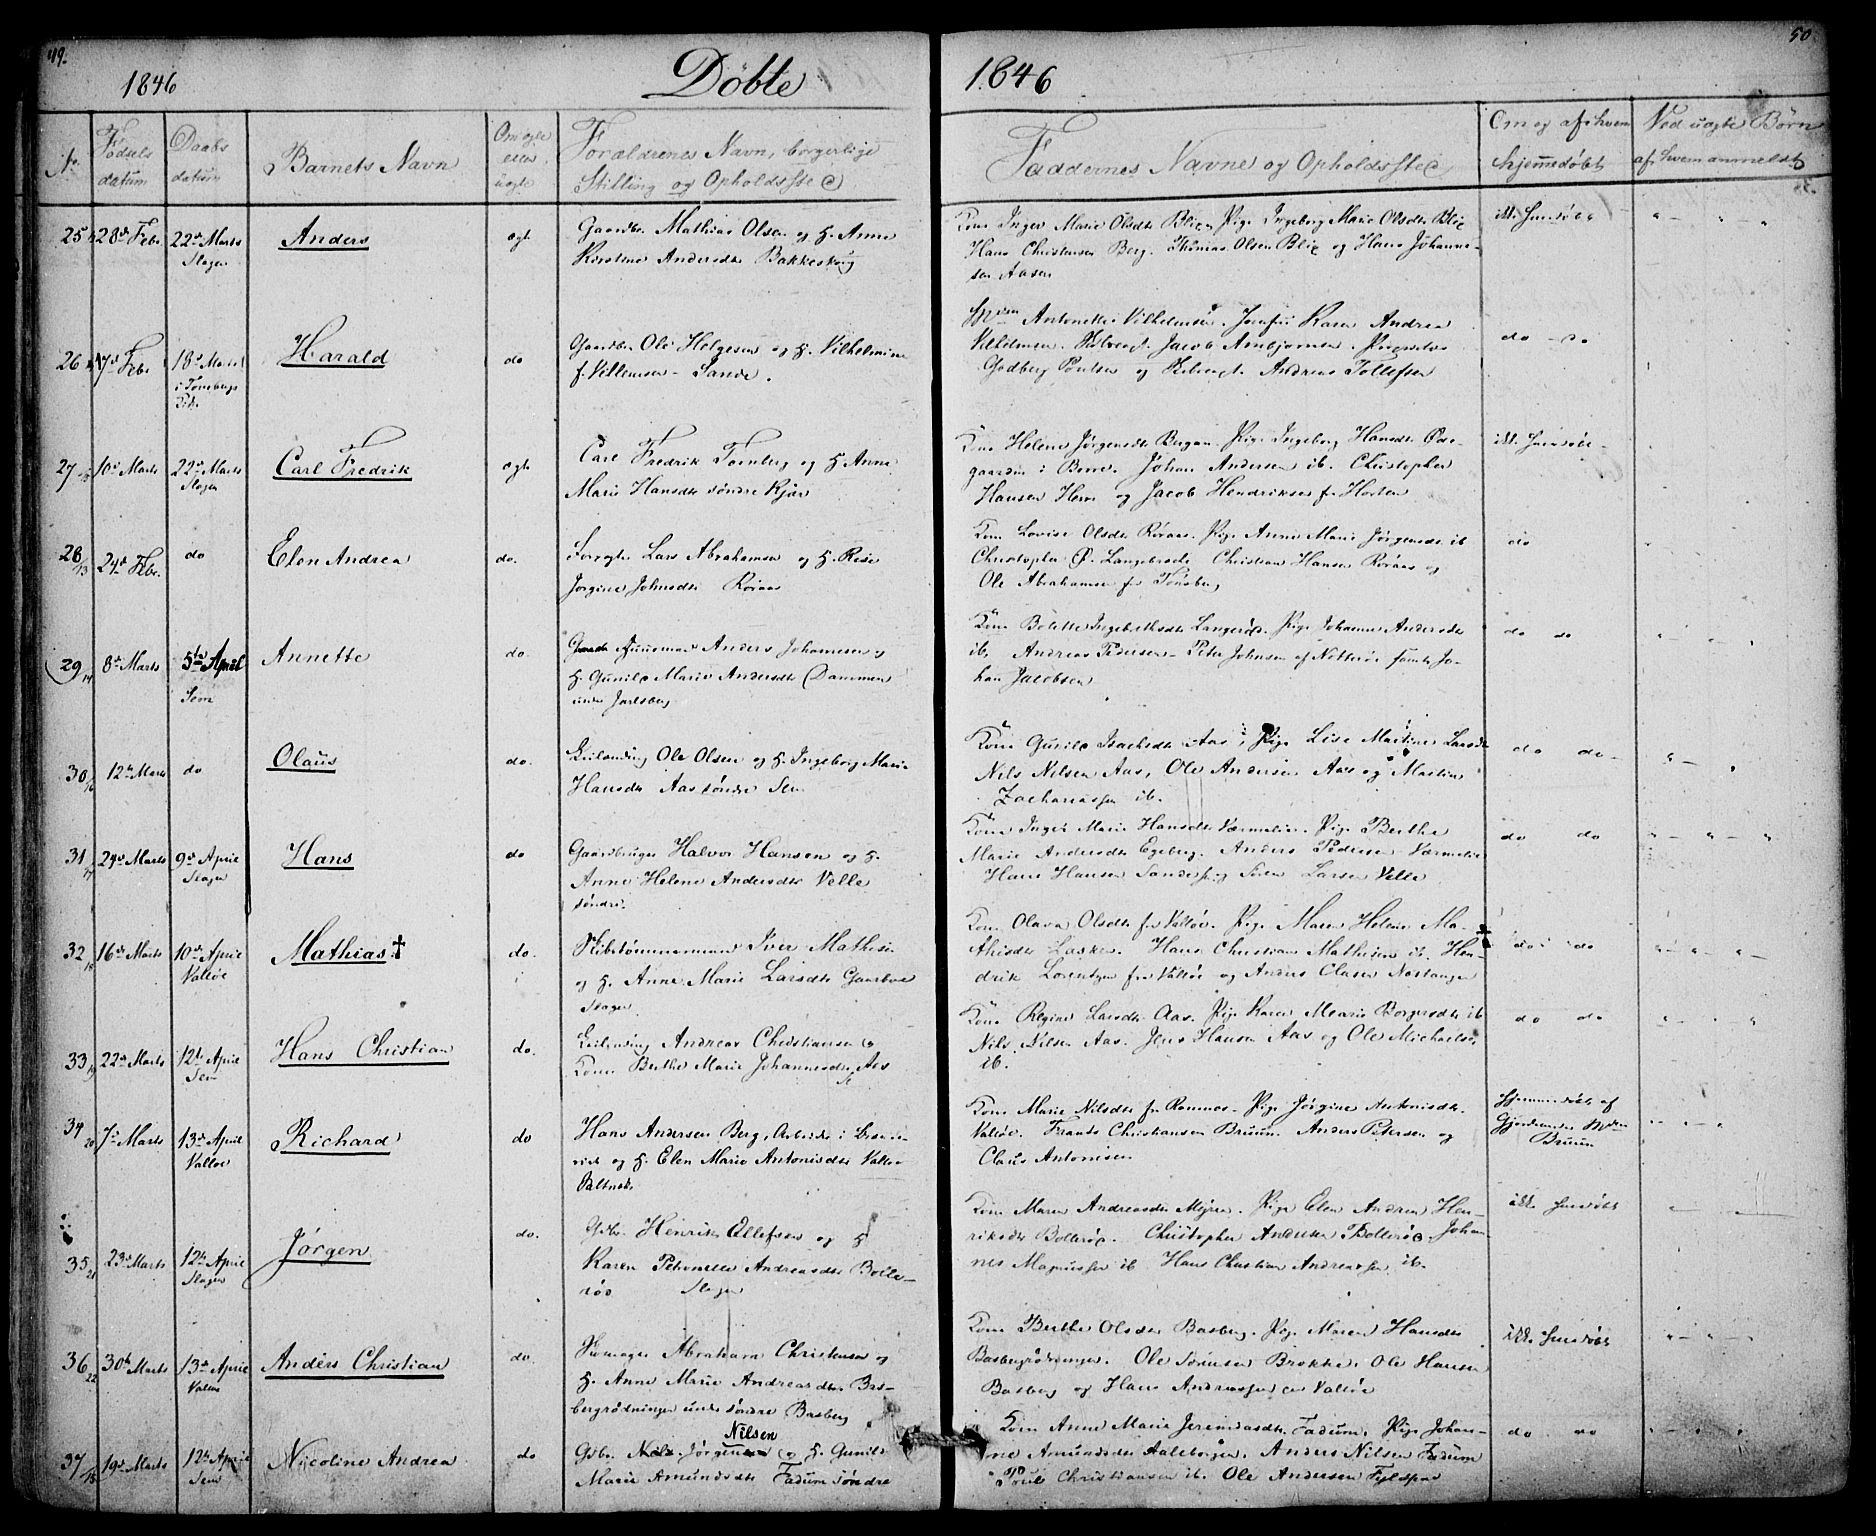 49.
1846
Døbte
1846
50
N.
Fødsels
datum
Daabs
datum
Barnets Navn
Om ægte
eller
uægte
Forældrenes Navn, borgerlige
Stilling og Opholdssted
Faddernes Navne og Opholdssted
Om og af hvem
hjemmedøbt
Ved uægte Børn
af hvem anmeldt
25 28de Febr 22de Marts Slagen
Anders
egt.
Gaardbr. Mathias Olsen og H. Anne
Kirstine Andersdtr Bakkeskoug
Kone Inger Marie Olsdtr Blix, Pige Ingeborg Marie Olsdtr Blix
Hans Christensen Berg. Thomas Olsen Blix og Hans Johanne-
sen Aasen
26 7de Febr 18de Marts i Tønsbergs
Harald
do
Gaardbr. Ole Helgesen og H. Vilhelmine
f. Villemsen Sande.
Antonette Vilhelmsen. Jomfru Karen Andrea
Vilhelmsen. Jacob Ambjørnsen.
Godberg Poulsen og Andreas Tollefsen
do
27 10de Marts 22de Marts Slagen
Carl Fredrik
egt.
Carl Fredrik Tornberg og H. Anne
Marie Hansdtr søndre Kjær
Kone Helene Jørgensdtr Bergan. Pige Ingeborg Hansdtr
gaarden i Borre. Johan Andersen ib. Christopher
Hansen og Jacob Hendriksen fr Horten
28/13 24de Febr. do
Elen Andrea
do.
Lars Abrahamsen og H. Risø
Jørgine Johnsdtr Røraas
Kone Lovise Olsdtr Røraas. Pige Anne Marie Jørgensdtr ib
Christopher Ø. Langebrekke Christian Hansen Røraas og
Ole Abrahamsen fr Tønsberg
do
29/14 8de Marts 5te April Sem
Annette
do.
Anders Johannesen og
H. Gunild Marie Andersdtr Dammen
under Jarlsberg
Kone Bolette Ingebrethsdtr Langerød. Pige Johanne Andersdtr
ib. Andreas Pedersen Peter Johnsen af Nøtterøe samt Jo-
han Jacobsen
do do
30/16 12te Marts do
Olaus
do.
Ole Olsen og H. Ingeborg Marie
Hansdtr Aas søndre Sem
Kone Gunild Isachsdtr Aas, Pige Lise Martine Larsdtr
Nils Nilsen Aas, Ole Andersen Aas og Martin
Zachariassen ib.
do do
31/17 24de Marts 9de April Slagen
Hans
do
Gaardbruger Halvor Hansen og H.
Anne Helene Andersdtr Velle
søndre.
Kone Inger Marie Hansdtr Værmelie. Pige Berthe
Marie Andersdtr Egeberg. Anders Pedersen Værmelie
Hans Hansen Sande og Søren Larsen Velle
do do
32/18 16de Marts 10de April Valløe
Mathias †
do.
Skibstømmermand Iver Mathisen
og H. Anne Marie Larsdtr Gaarboe
Slagen
Kone Olava Olsdtr fr Valløe. Pige Maren Helene Ma-
thisdtr Hans Christian Mathisen ib. Hen-
drik Lorentzen fr Valløe og Anders Olasen Nøstangen
do do
33/19 22de Marts 12te April Sem
Hans Christian
do.
Andreas Christiansen og
Kone Berthe Marie Johannesdtr Aas
Kone Regine Larsdtr Aas. Pige Karen Marie Borgersdtr ib
Nils Nilsen Aas. Jens Hansen Aas og Ole Michaelsen
ib.
do do
34/20 7de Marts 13de April Valløe
Richard
do
Hans Andersen Berg, Arbeider i
og H. Elen Marie Antonisdtr Valløe
Saltværk
Kone Marie Nilsdtr fr Ramnes. Pige Jørgine Antonisdtr
Valløe. Frants Christiansen Bruun. Anders Petersen og
Claus Antonisen
Hjemmedøbt af
Gjordemoder
Bruun
35/21 23de Marts 12te April Slagen
Jørgen
do.
Gdbr. Henrik Ollefsen og H
Karen Petronelle Andreasdtr Bolle-
rød Slagen
Kone Maren Andreasdtr Mejren. Pige Elen Andrea Hen-
riksdtr Bollerød. Christopher Andersen Bollerød. Johan-
nes Magnussen ib Hans Christian Andreassen ib.
ikke hiemdøbt
36/22 30te Marts 13de April Valløe
Anders Christian
do.
Abraham Christensen og
H. Anne Marie Andreasdtr Bas-
bergrødningen under søndre Basberg
Kone Berthe Olsdtr Basberg. Pige Maren Hansdtr
Basbergrødningen. Ole Sørensen Brokke. Ole Hansen
Basberg og Hans Andreassen Valløe
ikke hiemdøbt
37/15 19de Marts 12te April Sem
Nicoline Andrea
do
Nilsen
Gdbr. Jørgen og H. Gunild
Marie Amundsdtr Fadum søndre
Kone Anne Marie Jeremiasdtr Fadum. Pige Johan-
ne Amundsdtr Aaleborgen. Anders Nilsen Fadum
Poul Christiansen ib. Ole Andersen Fyldpaa
do do